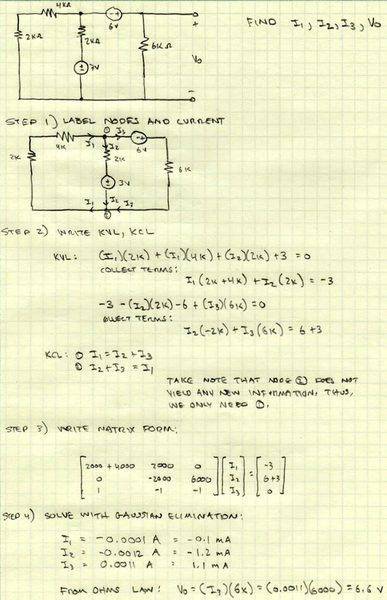 4KΩ
6V
FIND I₁, I₂, I₃, V₀
2KΩ
2KΩ
6KΩ
V₀
STEP 1) LABEL NODES AND CURRENT
① I₃
4K I₁ I₂ 6V
2K 2K 6K
3V
I₁ I₂ I₃
STEP 2) WRITE KVL, KCL
KVL: (I₁)(2K) + (I₁)(4K) + (I₂)(2K) + 3 = 0
COLLECT TERMS:
I₁(2K + 4K) + I₂(2K) = -3
-3 - (I₂)(2K) - 6 + (I₃)(6K) = 0
COLLECT TERMS:
I₂(-2K) + I₃(6K) = 6 + 3
KCL: ① I₁ = I₂ + I₃
② I₂ + I₃ = I₁
TAKE NOTE THAT NODE ② DOES NOT
YIELD ANY NEW INFORMATION, THUS,
WE ONLY NEED ①.
STEP 3) WRITE MATRIX FORM:
2000 + 4000 2000 0 I₁ = -3
0 -2000 6000 I₂ 6+3
1 -1 -1 I₃ 0
STEP 4) SOLVE WITH GAUSSIAN ELIMINATION:
I₁ = -0.0001 A = -0.1 mA
I₂ = -0.0012 A = -1.2 mA
I₃ = 0.0011 A = 1.1 mA
FROM OHMS LAW: V₀ = (I₃)(6K) = (0.0011)(6000) = 6.6 V